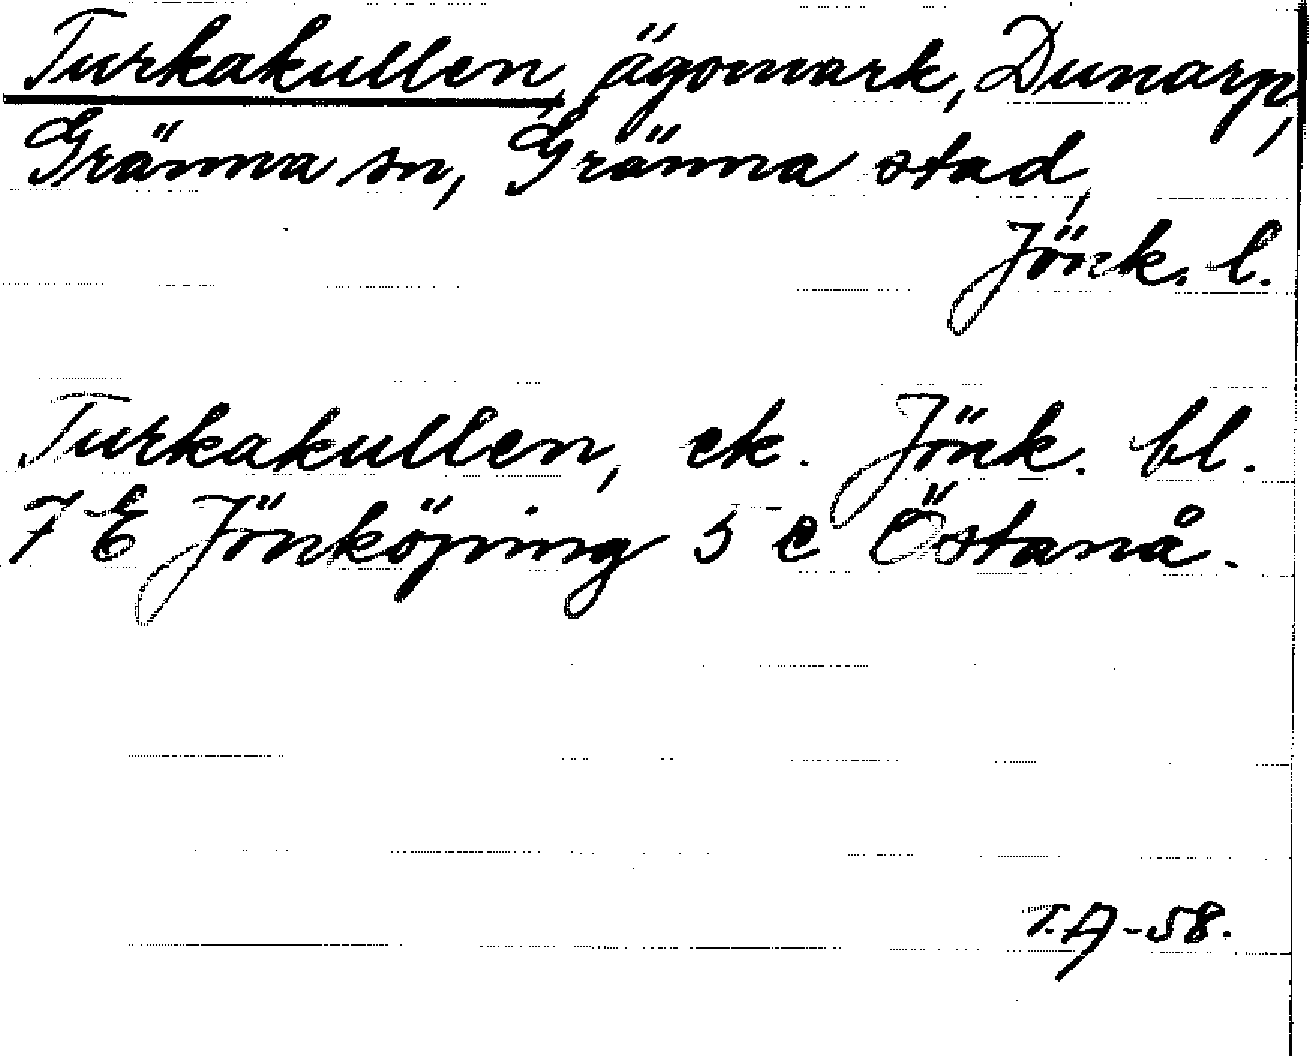 Turkakullen, ägomark, Dunarp,
Gränna sn, Gränna stad,
Jönk. l.
Turkakullen, ek. Jönk. bl.
7 E Jönköping 5 e Östanå.
T.A-58.